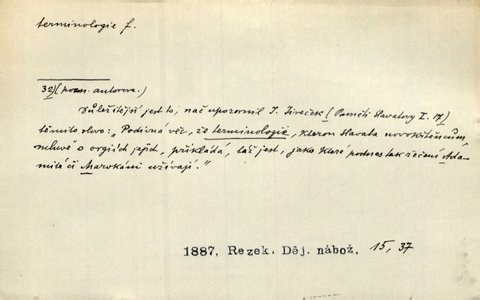 terminologie f.
32) (pozn. autorova.)
Důležitější jest to, nač upozornil J. Jireček (Paměti Slavatovy I. 17)
těmito slovy: „Podivná věc, že terminologie, kterou Slavata novokřtěncům,
mluvě o orgiích jejich, přikládá, táž jest, jako které podnes tak řečení Ada-
mité či Marokáni užívají.“
1887, Rezek. Děj. nábož. 15, 37